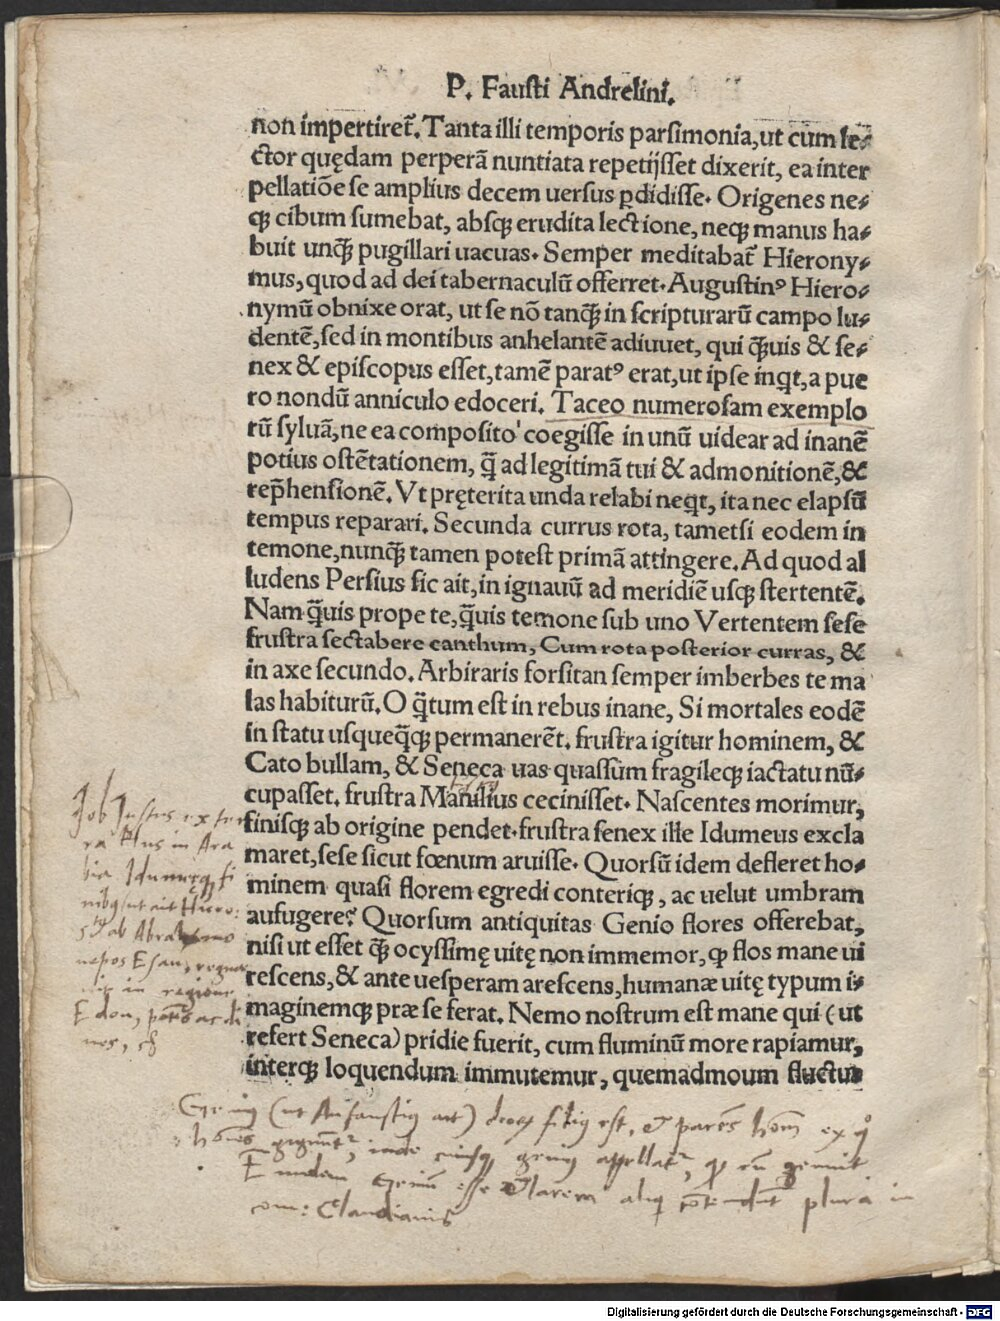 P. Fausti Andrelini.
non impertiret̃. Tanta illi temporis parsimonia, ut cum le⸗
ctor quędam perperã nuntiata repetijsset dixerit, ea inter
pellatiõe se amplius decem uersus ꝑdidisse. Origenes ne⸗
qꝫ cibum sumebat, absqꝫ erudita lectione, neqꝫ manus ha⸗
buit unq̃ꝫ pugillari uacuas. Semper meditabat̃ Hierony⸗
mus, quod ad dei tabernaculũ offerret. Augustinꝰ Hiero⸗
nymũ obnixe orat, ut se nõ tanq̃ꝫ in scripturarũ campo lu⸗
dentẽ, sed in montibus anhelantẽ adiuuet, qui q̃ꝫuis & se⸗
nex & episcopus esset, tamẽ paratꝰ erat, ut ipse inqt, a pue
ro nondũ anniculo edoceri. Taceo numerosam exemplo
rũ syluã, ne ea composito coegisse in unũ uidear ad inanẽ
potius ostẽtationem, q̃ ad legitimã tui & admonitionẽ, &
rep̃hensionẽ. Vt pręterita unda relabi neqt, ita nec elapsũ
tempus reparari. Secunda currus rota, tametsi eodem in
temone, nunq̃ꝫ tamen potest primã attingere. Ad quod al
ludens Persius sic ait, in ignauũ ad meridiẽ usqꝫ stertentẽ.
Nam q̃uis prope te, q̃uis temone sub uno Vertentem sese
frustra sectabere canthum, Cum rota posterior curras, &
in axe secundo. Arbiraris forsitan semper imberbes te ma
las habiturũ. O q̃tum est in rebus inane, Si mortales eodẽ
in statu usqueq̃qꝫ permanerẽt. frustra igitur hominem, &
Cato bullam, & Seneca uas quassum fragileqꝫ iactatu nũ⸗
cupasset. frustra Manilius cecinisset. Nascentes morimur,
finisqꝫ ab origine pendet. frustra senex ille Idumeus excla
maret, sese sicut fœnum aruisse. Quorsũ idem defleret ho⸗
minem quasi florem egredi conteriqꝫ, ac uelut umbram
aufugere? Quorsum antiquitas Genio flores offerebat,
nisi ut esset q̃ꝫ ocyssimę uitę non immemor, ꝙ flos mane ui
rescens, & ante uesperam arescens, humanæ uitę typum i⸗
maginemqꝫ præ se ferat. Nemo nostrum est mane qui (ut
refert Seneca) pridie fuerit, cum fluminũ more rapiamur,
interqꝫ loquendum immutemur, quemadmoum fluctus
Job Justus ex ter
ra Hus in Ara
bia Idumęęqꝫ fi
nibꝰ, ut ait Hiero:
ab Abrahamo
nepos Esau, regna
uit in regione
Edon,
Genius (ut Aufustius ait) deorꝫ filius est, & parẽs homĩ ex q̊
homĩes gignunt̃, inde cuiusqꝫ genius appellat̃, ꝙ cũ gemuit
Eundem Geniũ esse & larem aliq cõtendũt plura in
com: Claudianis
Digitalisierung gefördert durch die Deutsche Forschungsgemeinschaft - DFG